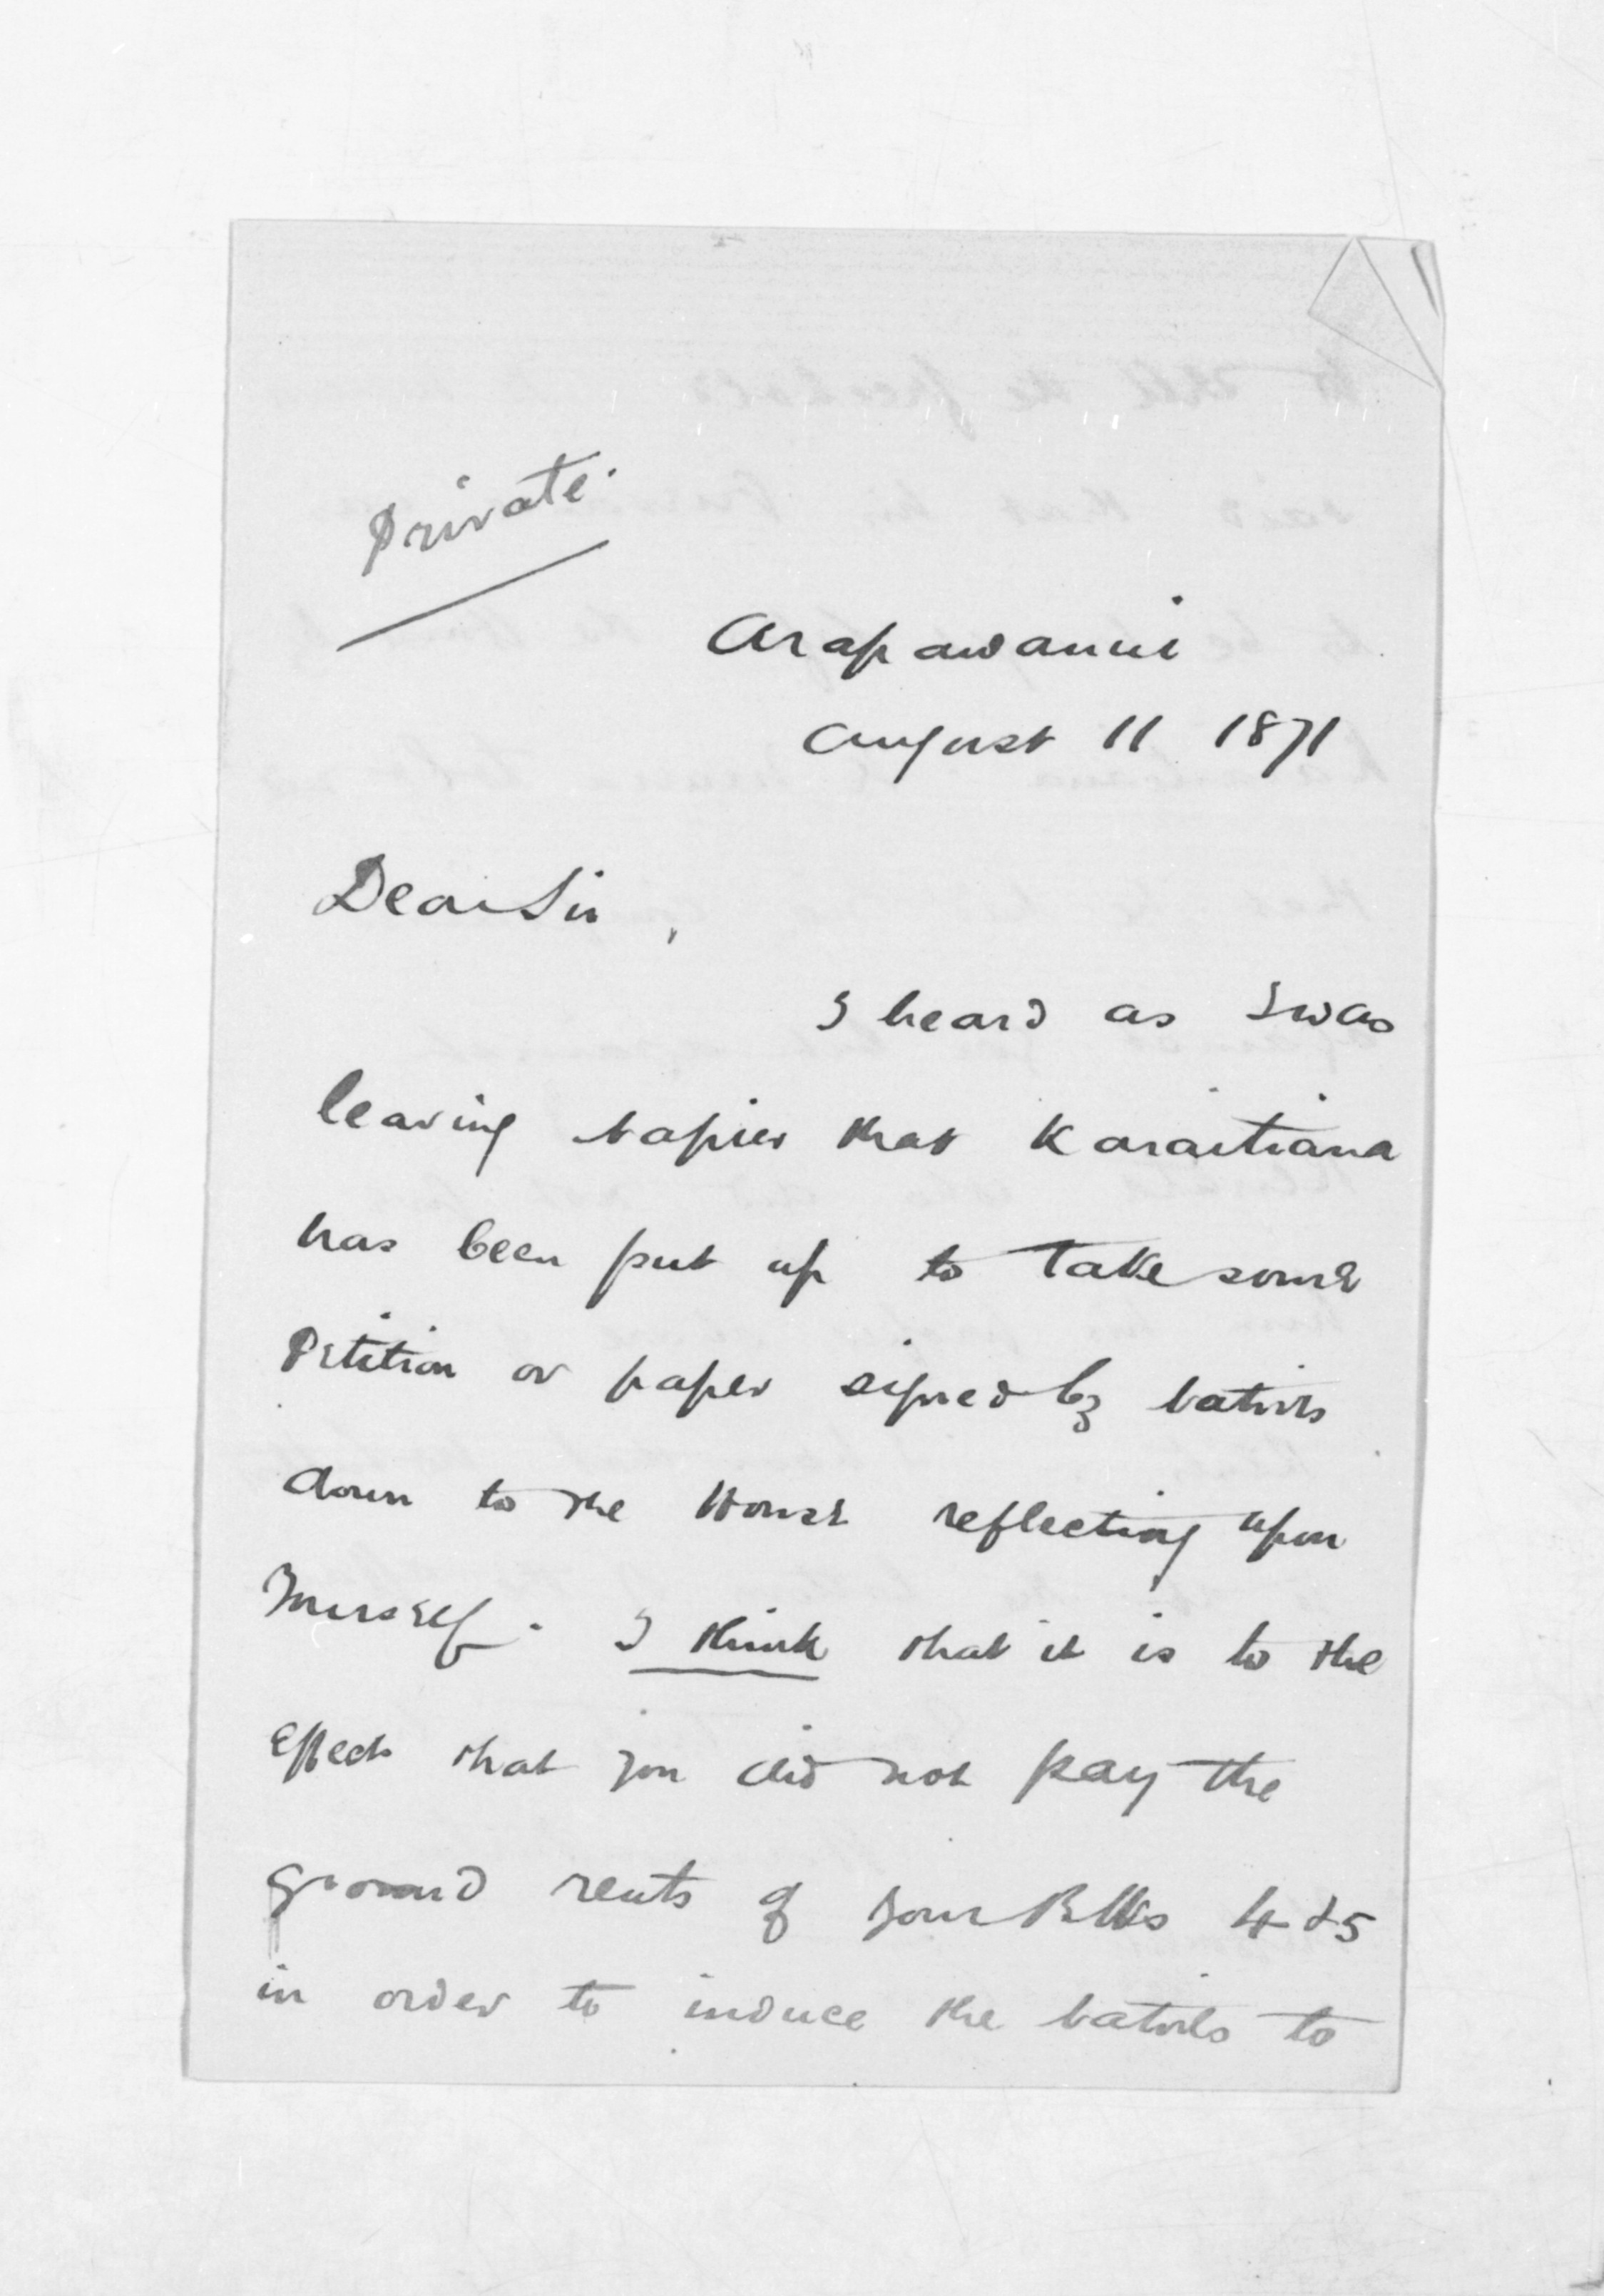 Private.
Arapawanui
August 11 1871
Dear Sir,
I heard as I was
leaving Napier that Karaitiana
has been put up to take some
Petition or paper signed by Natives
down to the House reflecting upon
Yourself. I think that it is to the
Effect that you did not pay the
ground rents of your Blks 4 & 5
in order to induce the Natives to